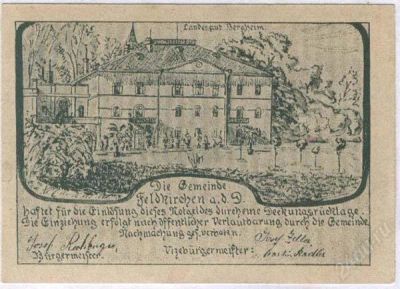 Landesgut Bergheim
Die Gemeinde
Feldkirchen a. d. D.
haftet für die Einlösung dieses Notgeldes durch eine Deckungsrücklage.
Die Einziehung erfolgt nach öffentlicher Verlautbarung durch die Gemeinde.
Nachmachung ges. verboten.
Josef
Josef
Bürgermeister.
Vizebürgermeister: